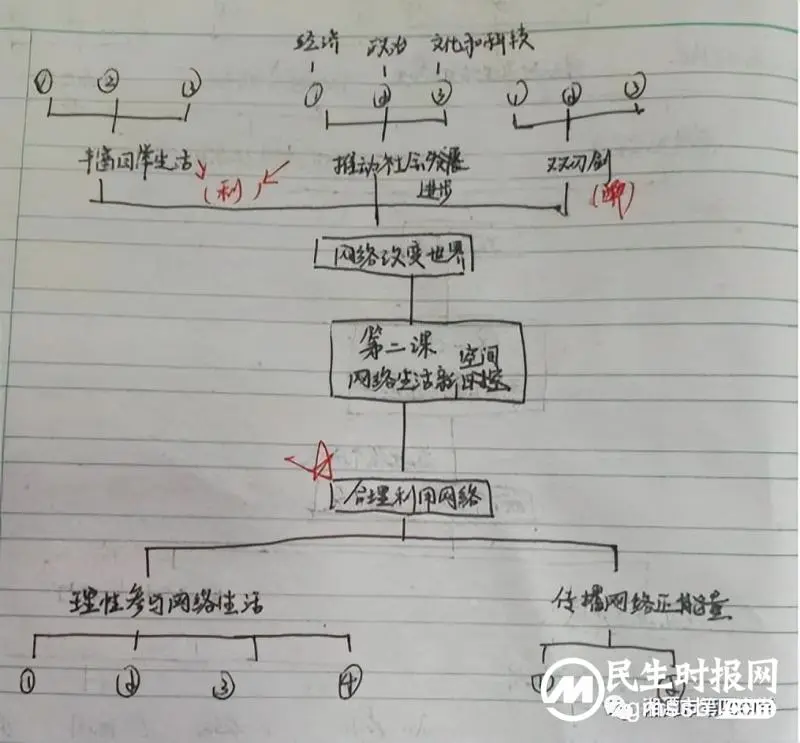 经济 政治 文化和科技
① ② ③ ① ② ③ ① ② ③
丰富日常生活 推动社会发展 双刃剑
(利) 进步 (弊)
网络改变世界
第二课
网络生活新空间
合理利用网络
理性参与网络生活 传播网络正能量
① ② ③ ④ ① ②
民生时报网